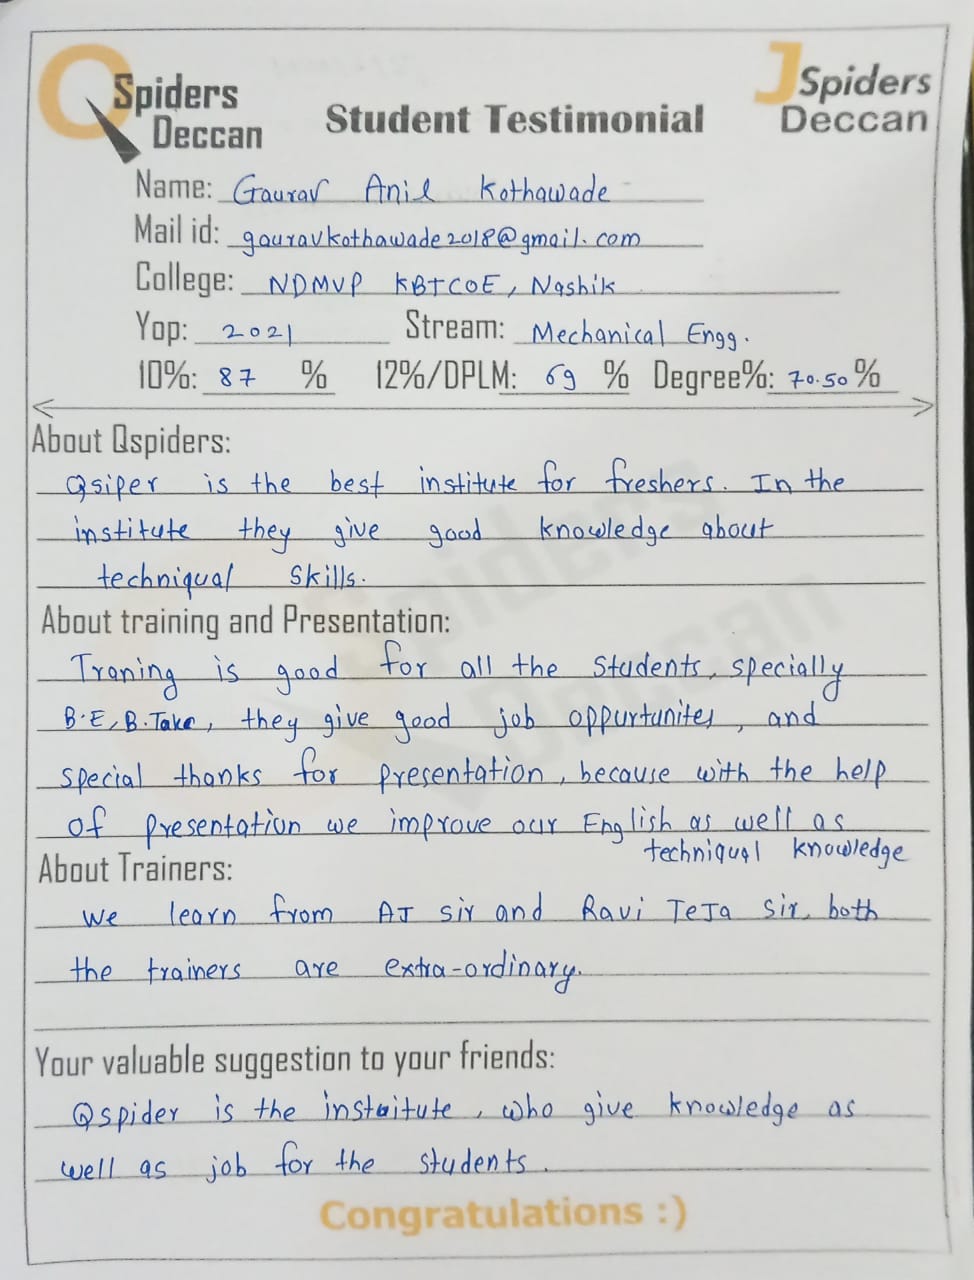 QSpiders Deccan
Student Testimonial
JSpiders Deccan
Name: Gaurav Anil Kothawade
Mail id: gauravkothawade2018@gmail.com
College: NDMVP KBTCOE, Nashik
Yop: 2021 Stream: Mechanical Engg.
10%: 87 % 12%/DPLM: 69 % Degree%: 70.50 %
About Qspiders:
Qsiper is the best institute for freshers. In the
institute they give good knowledge about
techniqual skills.
About training and Presentation:
Traning is good for all the students, specially
B.E, B.Take, they give good job oppurtunites, and
special thanks for presentation, because with the help
of presentation we improve our English as well as
techniqual knowledge
About Trainers:
We learn from AJ sir and Ravi TeJa Sir, both
the trainers are extra-ordinary.
Your valuable suggestion to your friends:
Qspider is the instaitute, who give knowledge as
well as job for the students.
Congratulations :)